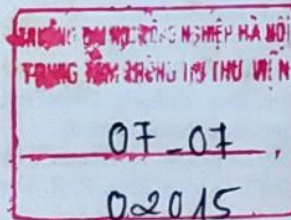 TRƯỜNG ĐẠI HỌC CÔNG NGHIỆP HÀ NỘI
TRUNG TÂM THÔNG TIN THƯ VIỆN
07-07
02015